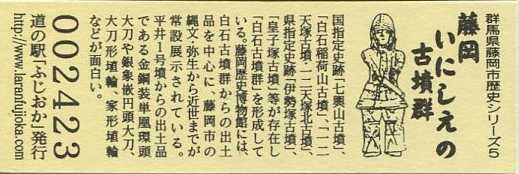 群馬県藤岡市歴史シリーズ5
藤岡
いにしえの
古墳群
国指定史跡「七輿山古墳」、
「白石稲荷山古墳」、「十二
天塚古墳」、「十二天塚北古墳」、
県指定史跡「伊勢塚古墳」、
「皇子塚古墳」等が存在し
「白石古墳群」を形成して
いる。藤岡歴史博物館には、
白石古墳群からの出土
品を中心に、藤岡市の
縄文・弥生から近世までが
常設展示されている。
平井1号墳からの出土品
である金銅装単鳳環頭
大刀や銀象嵌円頭大刀、
大刀形埴輪、家形埴輪
などが面白い。
002423
道の駅「ふじおか」発行
http://www.laranfujioka.com